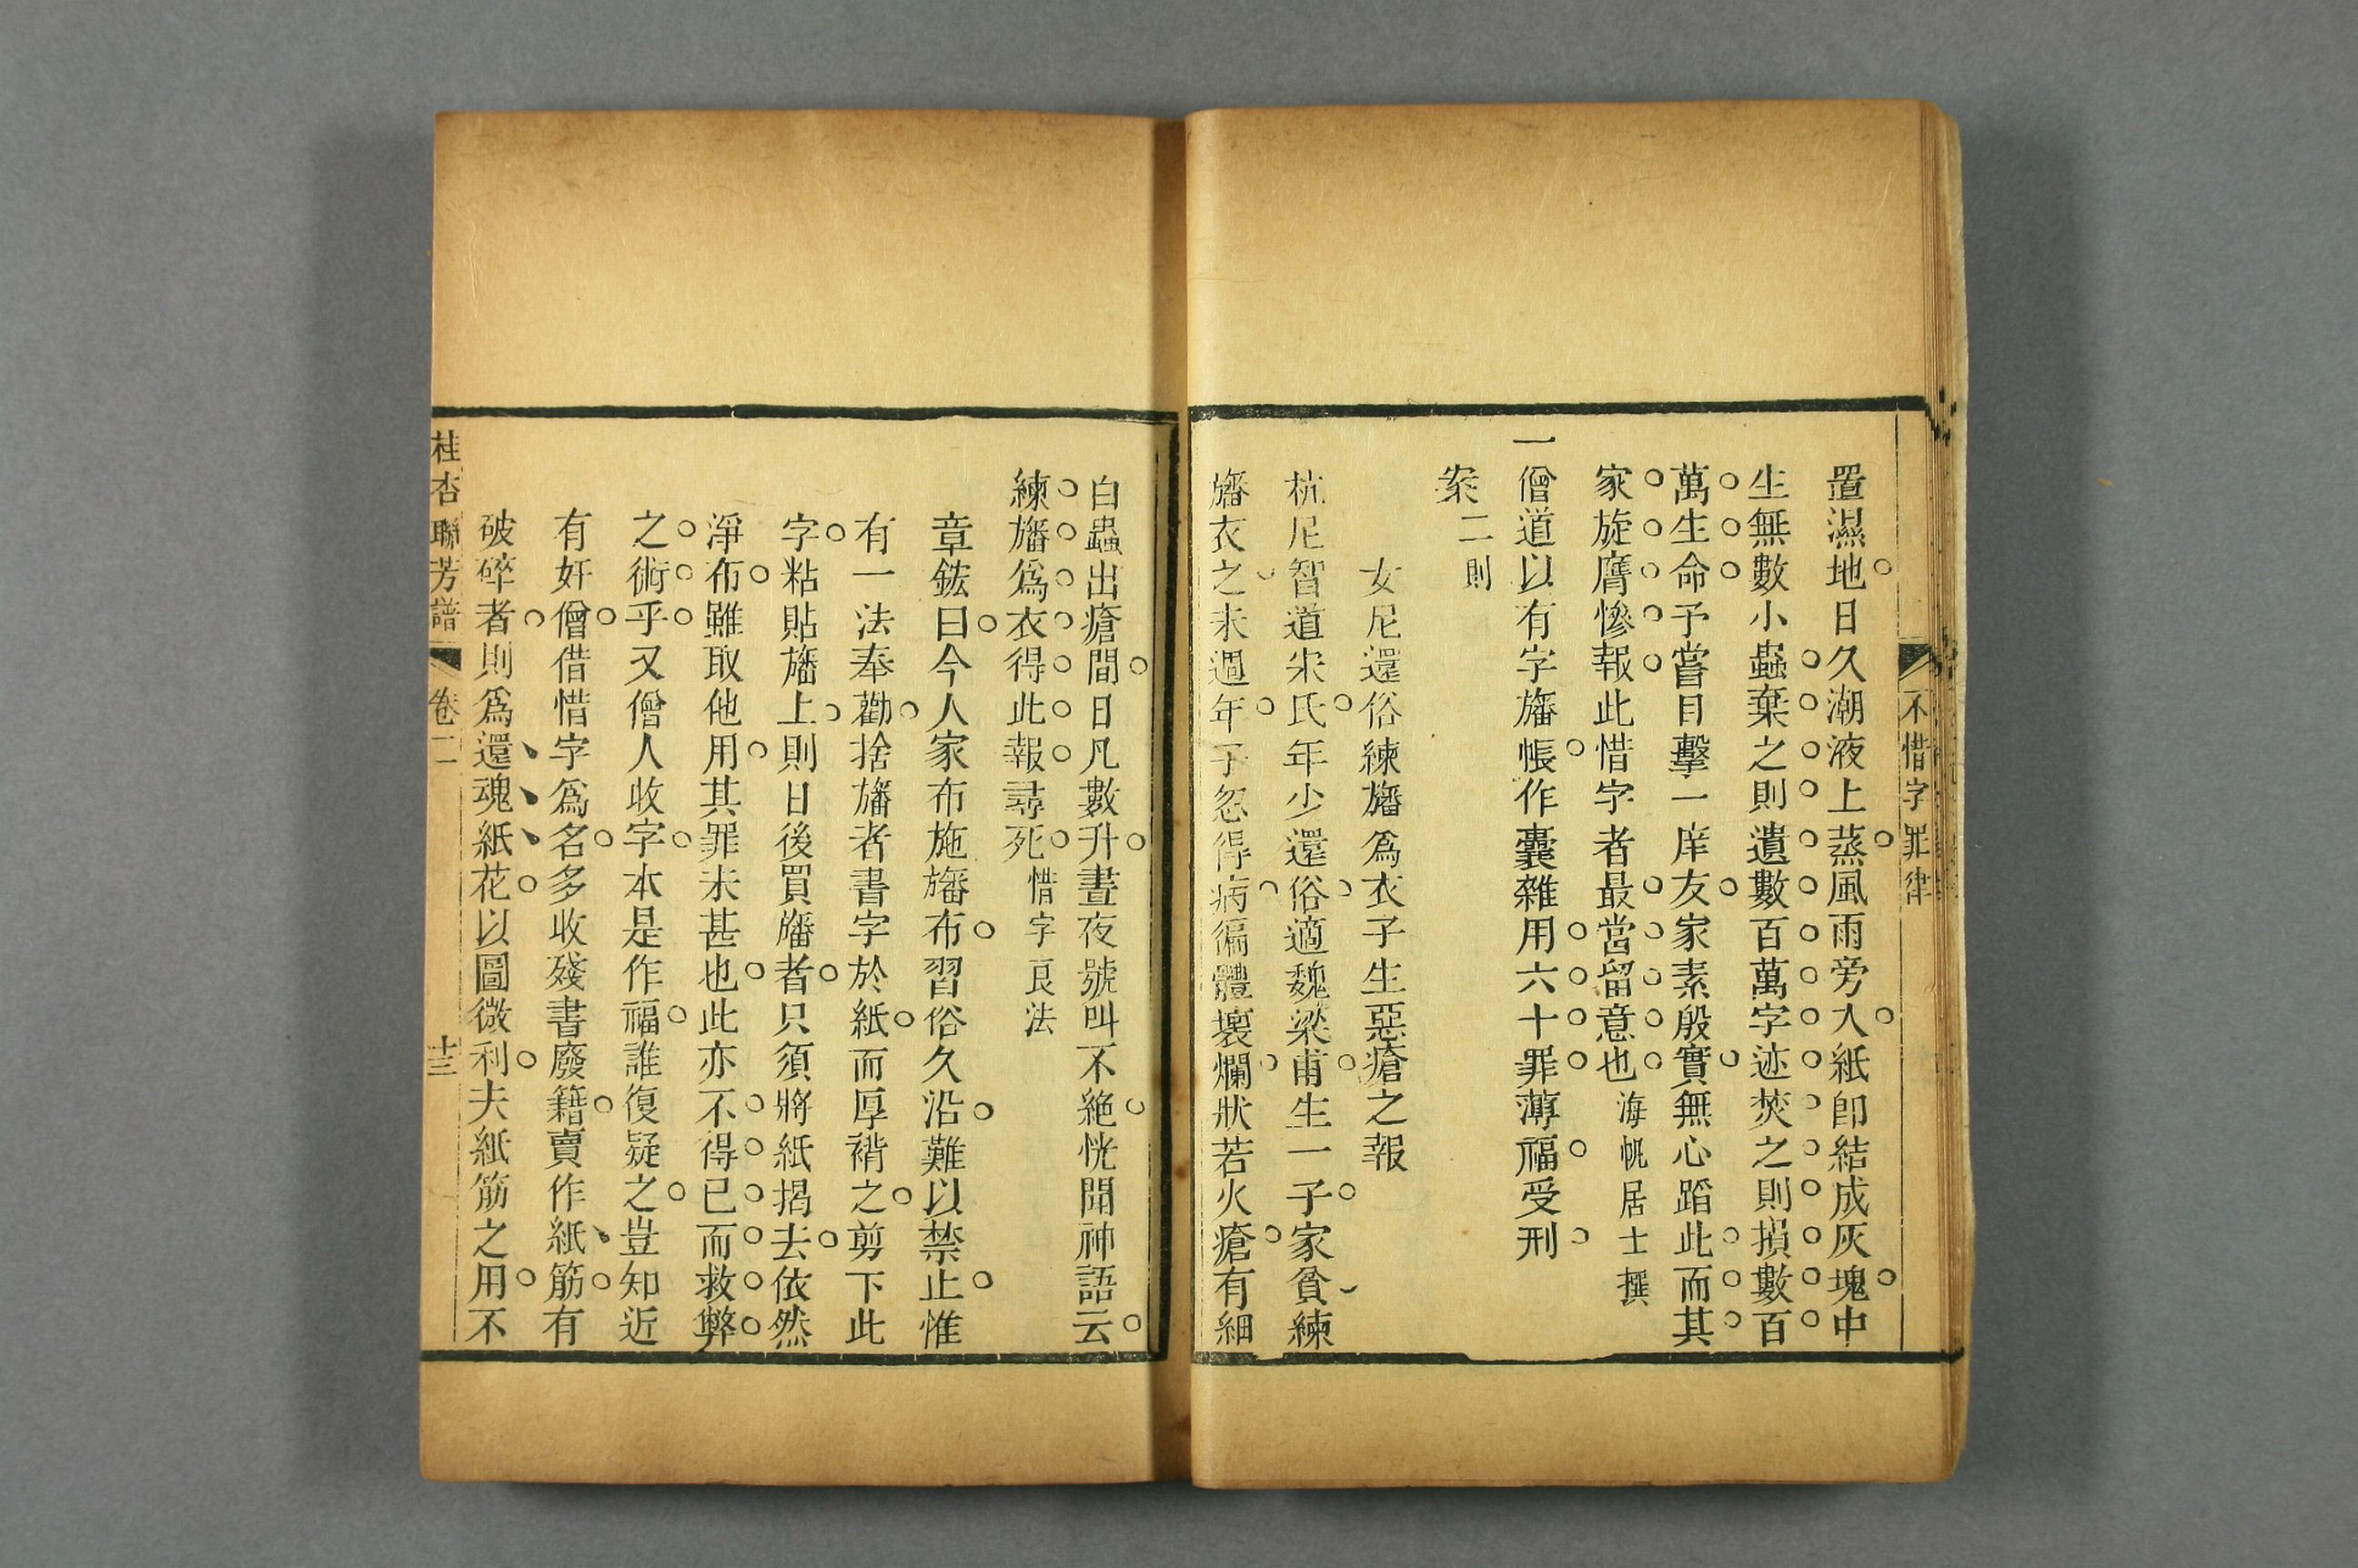 不惜字罪律
置濕地日久潮液上蒸風雨旁入紙卽結成灰塊中
生無數小蟲棄之則遺數百萬字迹焚之則損數百
萬生命予嘗目擊一庠友家素殷實無心蹈此而其
家旋膺慘報此惜字者最當留意也海帆居士撰
一僧道以有字旛帳作囊雜用六十罪薄福受刑
案二則
女尼還俗練旛爲衣子生惡瘡之報
杭尼智道朱氏年少還俗適魏梁甫生一子家貧練
旛衣之未週年子忽得病徧體壞爛狀若火瘡有細
白蟲出瘡間日凡數升晝夜號叫不絶恍聞神語云
練旛爲衣得此報尋死惜字良法
章鋐曰今人家布施旛布習俗久沿難以禁止惟
有一法奉勸捨旛者書字於紙而厚褙之剪下此
字粘貼旛上則日後買旛者只須將紙揭去依然
淨布雖取他用其罪未甚也此亦不得已而救弊
之術乎又僧人收字本是作福誰復疑之豈知近
有奸僧借惜字爲名多收殘書廢籍賣作紙筋有
破碎者則爲還魂紙花以圖微利夫紙筋之用不
桂杏聯芳譜 卷二 十三